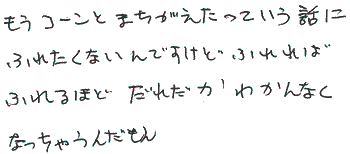 もうコーンとまちがえたっていう話に
ふれたくないんですけど ふれれば
ふれるほど だれだか わかんなく
なっちゃうんだもん